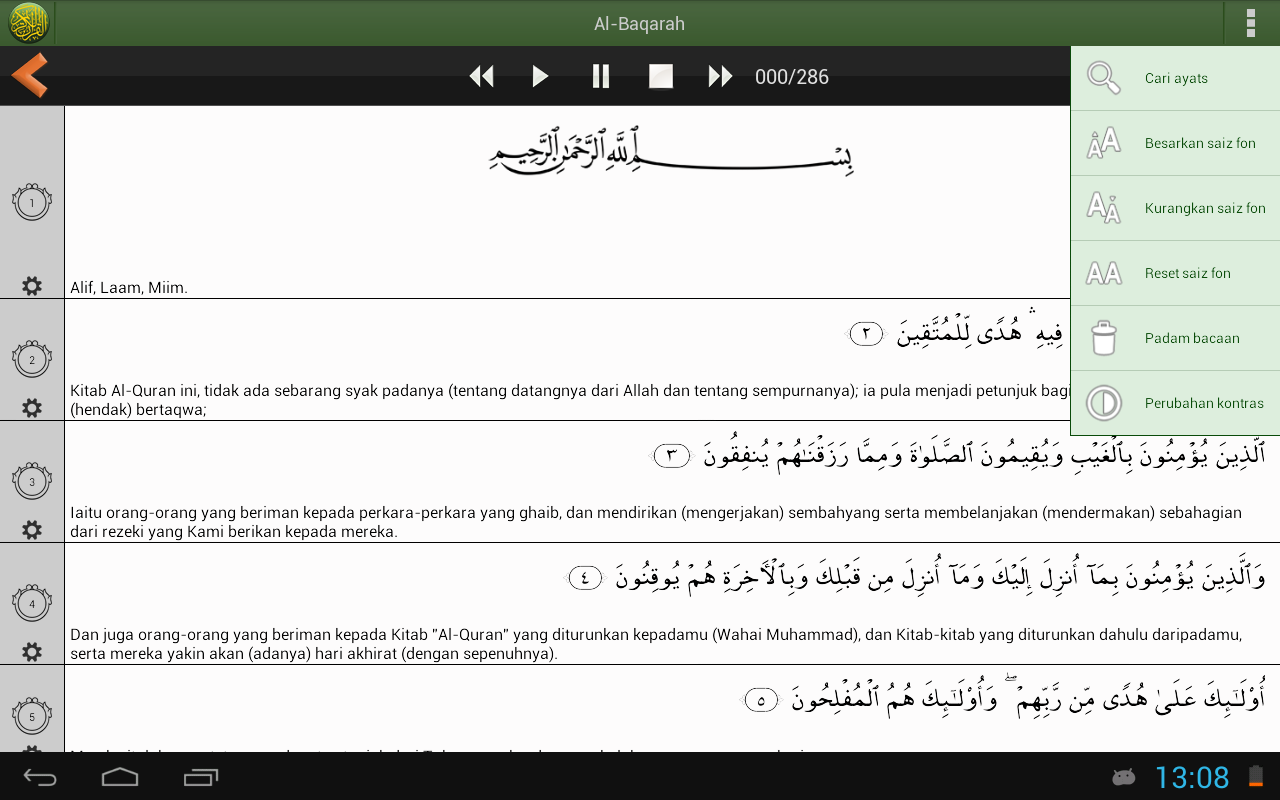 Al-Baqarah
000/286
Cari ayats
Besarkan saiz fon
Kurangkan saiz fon
Reset saiz fon
Padam bacaan
Perubahan kontras
1
بِسْمِ ٱللَّهِ ٱلرَّحْمَٰنِ ٱلرَّحِيمِ
Alif, Laam, Miim.
2
فِيهِ ۛ هُدًى لِّلْمُتَّقِينَ ٢
Kitab Al-Quran ini, tidak ada sebarang syak padanya (tentang datangnya dari Allah dan tentang sempurnanya); ia pula menjadi petunjuk bagi
(hendak) bertaqwa;
3
ٱلَّذِينَ يُؤْمِنُونَ بِٱلْغَيْبِ وَيُقِيمُونَ ٱلصَّلَوٰةَ وَمِمَّا رَزَقْنَٰهُمْ يُنفِقُونَ ٣
Iaitu orang-orang yang beriman kepada perkara-perkara yang ghaib, dan mendirikan (mengerjakan) sembahyang serta membelanjakan (mendermakan) sebahagian
dari rezeki yang Kami berikan kepada mereka.
4
وَٱلَّذِينَ يُؤْمِنُونَ بِمَآ أُنزِلَ إِلَيْكَ وَمَآ أُنزِلَ مِن قَبْلِكَ وَبِٱلْءَاخِرَةِ هُمْ يُوقِنُونَ ٤
Dan juga orang-orang yang beriman kepada Kitab "Al-Quran" yang diturunkan kepadamu (Wahai Muhammad), dan Kitab-kitab yang diturunkan dahulu daripadamu,
serta mereka yakin akan (adanya) hari akhirat (dengan sepenuhnya).
5
أُو۟لَٰٓئِكَ عَلَىٰ هُدًى مِّن رَّبِّهِمْ ۖ وَأُو۟لَٰٓئِكَ هُمُ ٱلْمُفْلِحُونَ ٥
13:08